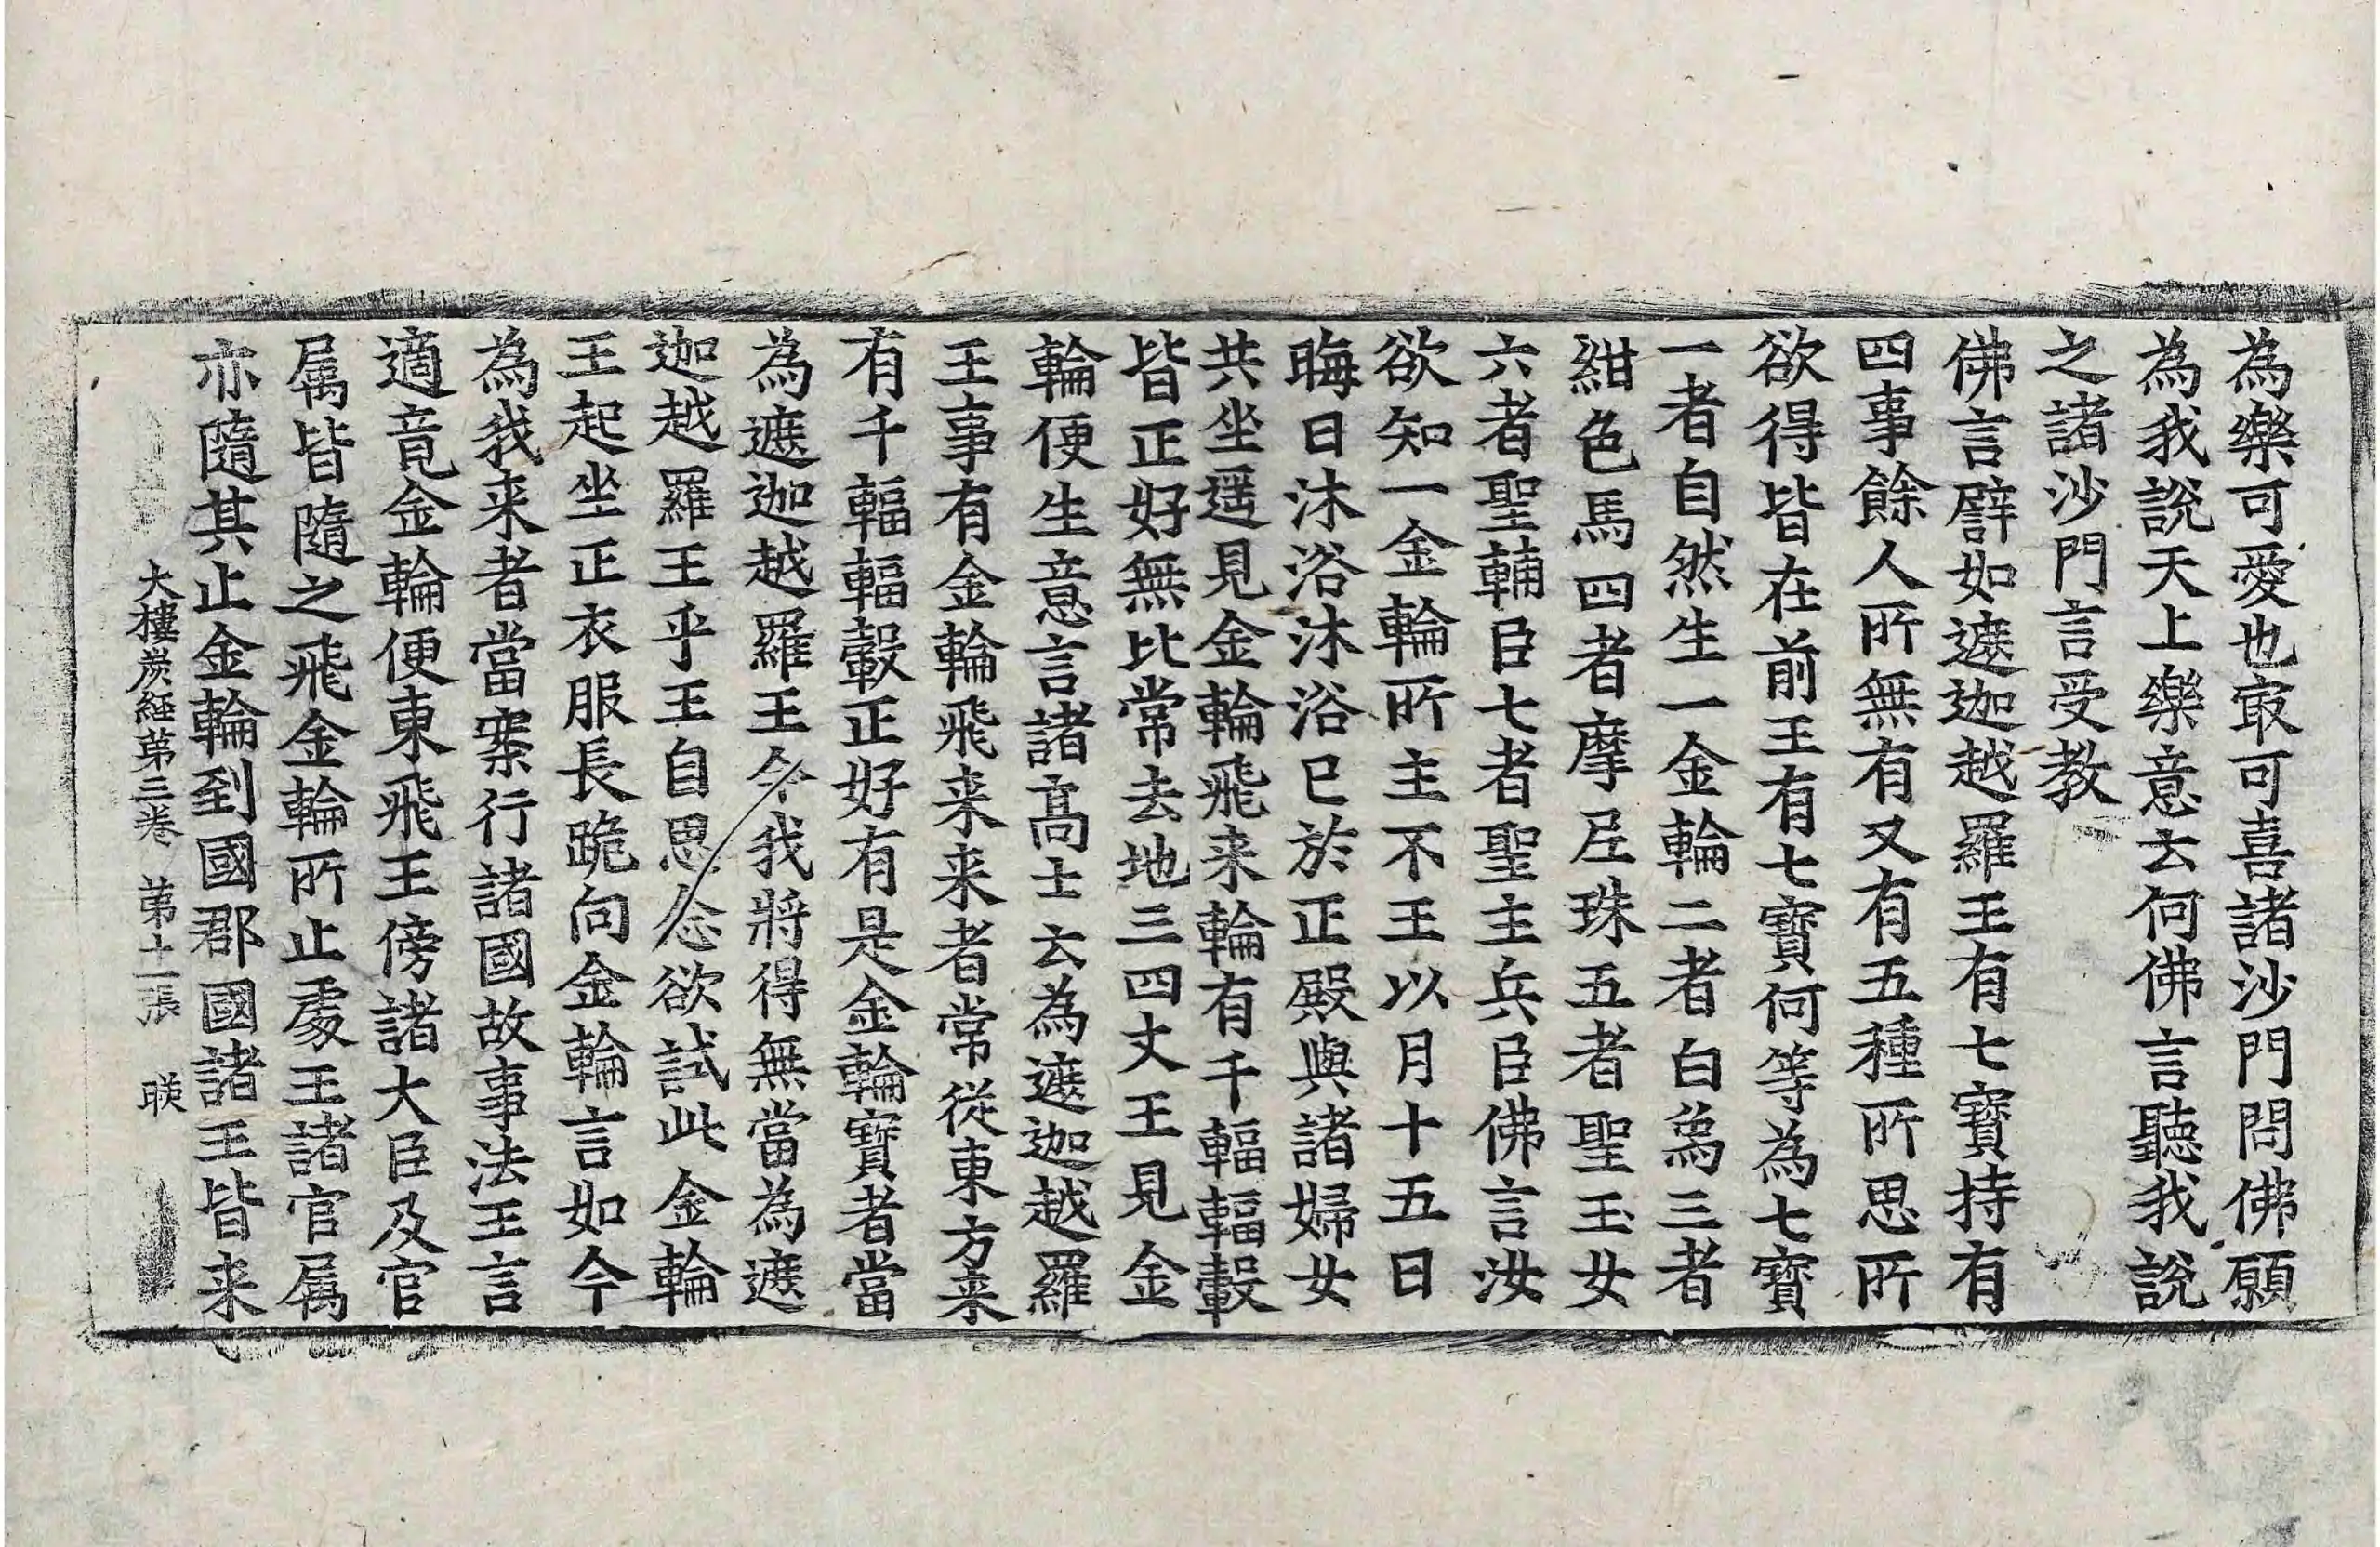 為樂可愛也㝡可喜諸沙門問佛願
為我說天上樂意云何佛言聽我說
之諸沙門言受教
佛言譬如遮迦越羅王有七寶持有
四事餘人所無有又有五種所思所
欲得皆在前王有七寶何等為七寶
一者自然生一金輪二者白象三者
紺色馬四者摩尼珠五者聖玉女
六者聖輔臣七者聖主兵臣佛言汝
欲知一金輪所主不王以月十五日
晦日沐浴沐浴已於正殿與諸婦女
共坐遥見金輪飛来輪有千輻輻轂
皆正好無比常去地三四丈王見金
輪便生意言諸高士云為遮迦越羅
王事有金輪飛来来者常從東方来
有千輻輻轂正好有是金輪寶者當
為遮迦越羅王今我將得無當為遮
迦越羅王乎王自思念欲試此金輪
王起坐正衣服長跪向金輪言如今
為我来者當案行諸國故事法王言
適竟金輪便東飛王傍諸大臣及官
屬皆隨之飛金輪所止處王諸官屬
亦隨其止金輪到國郡國諸王皆来
大樓炭經第三卷 第十二張 映